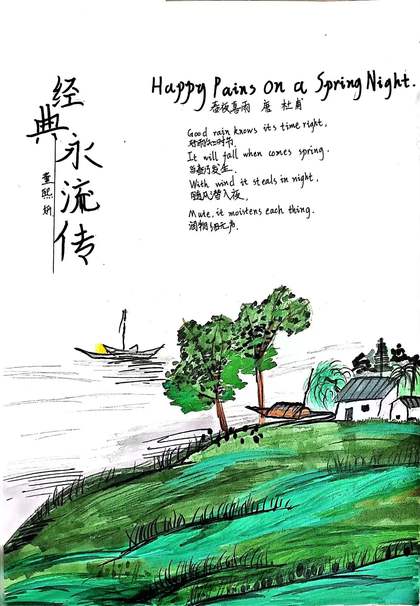 经典永流传
董熙妍
Happy Pains on a Spring Night.
春夜喜雨 唐 杜甫
Good rain knows its time right,
好雨知时节,
It will fall when comes spring.
当春乃发生.
With wind it steals in night,
随风潜入夜,
Mute, it moistens each thing.
润物细无声.